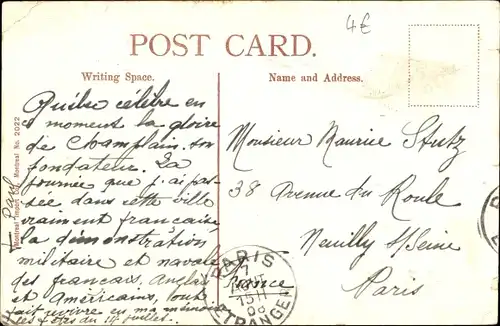 4€
POST CARD.
Writing Space.
Name and Address.
Québec célèbre en
ce moment la gloire
de Champlain, son
fondateur. La
journée que j'ai pas-
sée dans cette ville
vraiment française,
la démonstration
militaire et navale
des français, Anglais
et Américains, tout
fait revivre en ma mémoire
les fêtes du 14 juillet.
Paul
Montreal Import Co., Montreal No. 2022
Monsieur Maurice Stutz
38 Avenue du Roule
Neuilly s/Seine
Paris
France
PARIS
7
AOUT
15H
08
ETRANGER